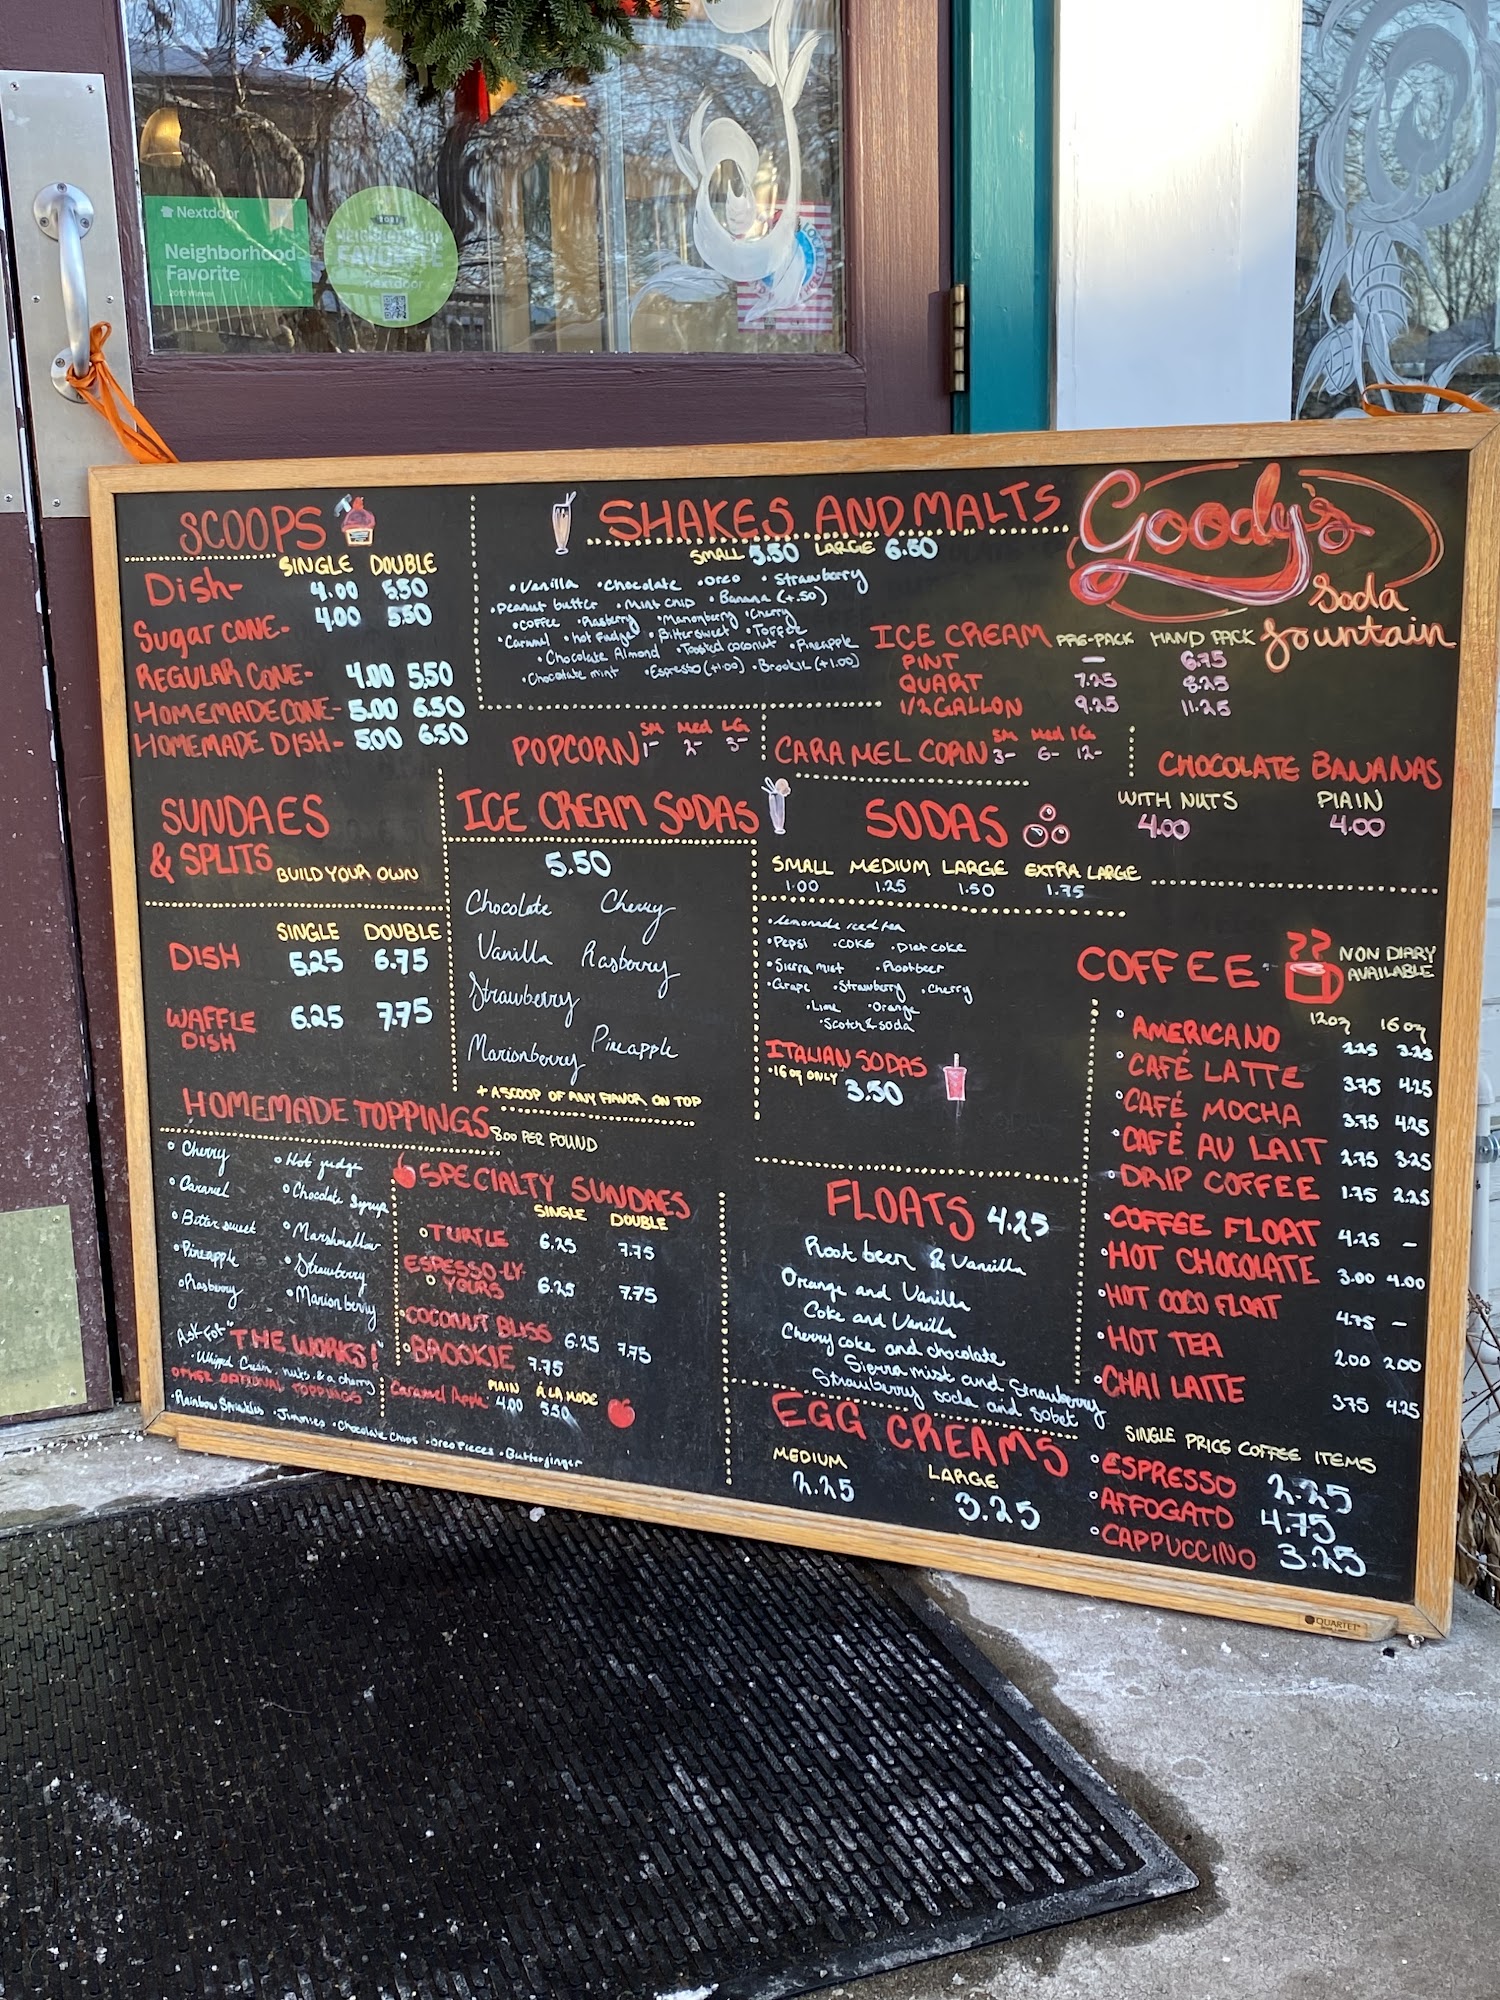 Nextdoor
Neighborhood
Favorite
2019 Winner
FAVORITE
nextdoor
Goody's
Soda
fountain
SCOOPS
SINGLE DOUBLE
Dish- 4.00 5.50
Sugar CONE- 4.00 5.50
REGULAR CONE- 4.00 5.50
HOMEMADE CONE- 5.00 6.50
HOMEMADE DISH- 5.00 6.50
SHAKES AND MALTS
SMALL 5.50 LARGE 6.50
•Vanilla •Chocolate •Oreo •Strawberry
•Peanut butter •Mint Chip •Banana (+.50)
•COFFEE •Rasberry •Marionberry •Cherry
•Caramel •hot fudge •Bittersweet •Toffee
•Chocolate Almond •Toasted coconut •Pineapple
•Chocolate mint •Espresso (+1.00) •Brookie (+1.00)
ICE CREAM PRE-PACK HAND PACK
PINT — 6.75
QUART 7.25 8.25
1/2 GALLON 9.25 11.25
POPCORN SM Med LG
1- 2- 3-
CARAMEL CORN SM Med LG
3- 6- 12-
CHOCOLATE BANANAS
WITH NUTS PLAIN
4.00 4.00
SUNDAES
& SPLITS BUILD YOUR OWN
SINGLE DOUBLE
DISH 5.25 6.75
WAFFLE DISH 6.25 7.75
ICE CREAM SODAS
5.50
Chocolate Cherry
Vanilla Rasberry
Strawberry
Marionberry Pineapple
+ A SCOOP OF ANY FLAVOR ON TOP
SODAS
SMALL MEDIUM LARGE EXTRA LARGE
1.00 1.25 1.50 1.75
•Lemonade iced tea
•Pepsi •COKE •Diet coke
•Sierra mist •Rootbeer
•Grape •Strawberry •Cherry
•Lime •Orange
•Scotch & soda
ITALIAN SODAS
•16 oz ONLY 3.50
COFFEE NON DIARY
AVAILABLE
12oz 16oz
AMERICANO 2.25 3.25
CAFÉ LATTE 3.75 4.25
CAFÉ MOCHA 3.75 4.25
CAFÉ AU LAIT 2.75 3.25
DRIP COFFEE 1.75 2.25
COFFEE FLOAT 4.25 —
HOT CHOCOLATE 3.00 4.00
HOT COCO FLOAT 4.75 —
HOT TEA 2.00 2.00
CHAI LATTE 3.75 4.25
SINGLE PRICE COFFEE ITEMS
ESPRESSO 2.25
AFFOGATO 4.75
CAPPUCCINO 3.25
HOMEMADE TOPPINGS 8.00 PER POUND
Cherry •Hot fudge
•Caramel •Chocolate Syrup
•Bitter sweet •Marshmallow
•Pineapple •Strawberry
•Rasberry •Marion berry
Ask For "THE WORKS!"
•Whipped Cream, nuts, & a cherry
OTHER OPTIONAL TOPPINGS
•Rainbow Sprinkles •Jimmies •Chocolate Chips •Oreo Pieces •Butterfinger
SPECIALTY SUNDAES
SINGLE DOUBLE
TURTLE 6.25 7.75
ESPESSO-LY
YOURS 6.25 7.75
COCONUT BLISS 6.25 7.75
BROOKIE 7.75
PLAIN À LA MODE
Caramel Apple 4.00 5.50
FLOATS 4.25
Root beer & Vanilla
Orange and Vanilla
Coke and Vanilla
Cherry coke and chocolate
Sierra mist and Strawberry
Strawberry soda and sobet
EGG CREAMS
MEDIUM LARGE
2.25 3.25
QUARTET